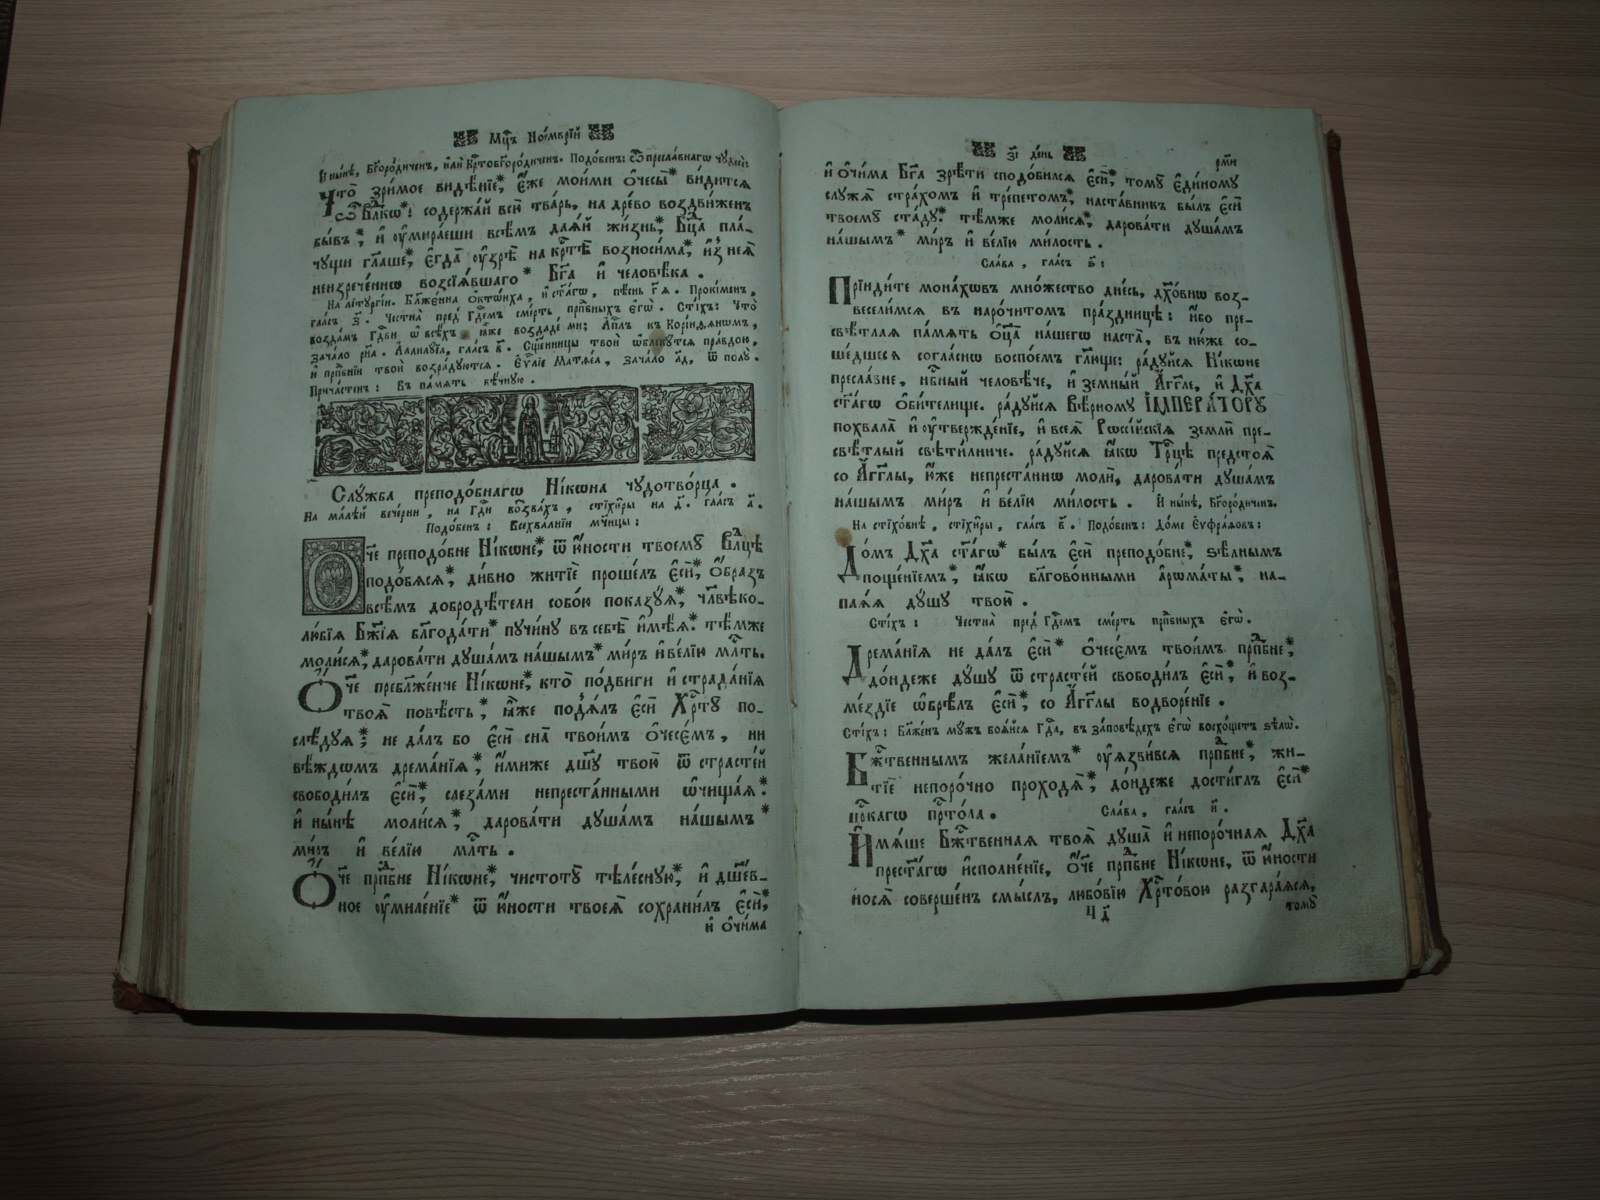 Мц҃ъ Ноемврїй
И҆ ны́нѣ, Бг҃оро́диченъ, и҆лѝ Крⷭ҇тобг҃оро́диченъ. Подо́бенъ: Ѿ пресла́внагѡ чꙋде́съ
Что̀ зри́мое видѣ́нїе,* є҆́же мои́ми ѻ҆чесы̀* ви́дитсѧ
ѽ Влⷣко*: содержа́й всю̀ тва́рь, на дре́во воздви́женъ
бы́въ*, и҆ ᲂу҆мира́еши всѣ́мъ даѧ́й жи́знь,* Бц҃а пла́-
чꙋщи гл҃аше,* є҆гда̀ ᲂу҆зрѣ̀ на крⷭ҇тѣ̀ возноси́ма,* и҆з̾ неѧ̀
неизрече́ннѡ возсїѧ́вшаго* Бг҃а и҆ человѣ́ка.
На лїтꙋргі́и. Бл҃жє́нна ѻ҆ктѡ́иха, и҆ ст҃а́гѡ, пѣ́снь г҃ѧ. Проки́менъ,
гла́съ з҃. Честна̀ пред̾ Гдⷭ҇емъ сме́рть прпⷣбныхъ є҆гѡ̀. Сті́хъ: Что̀
возда́мъ Гдⷭ҇ви ѡ҆ всѣ́хъ ꙗ҆́же воздаде́ ми; Апⷭ҇лъ къ Корі́нѳѧнѡмъ,
зача́ло рпⷥ҇а. Аллилꙋ́їа, гла́съ в҃. Сщ҃е́нницы твоѝ ѡ҆блекꙋ́тсѧ пра́вдою,
и҆ прпⷣбнїи твоѝ возра́дꙋютсѧ. Єѵⷢ҇лїе Матѳе́а, зача́ло л҃д, ѿ полꙋ̀.
Прича́стенъ: Въ па́мѧть вѣ́чнꙋю.
Слꙋ́жба преподо́бнагѡ Ні́кѡна чꙋдотво́рца.
На ма́лѣй вече́рни, на Гдⷭ҇и воззва́хъ, стїхи̑ры на д҃. гла́съ а҃.
Подо́бенъ: Всехва́льнїи мч҃нцы:
Ѻ҆́че преподо́бне Ні́кѡне,* ѿ ю҆́ности твоемꙋ̀ Влⷣцѣ
подо́бѧсѧ,* ди́вно житїѐ проше́лъ є҆сѝ,* ѻ҆́бразъ
всѣ́мъ доброде́тели собо́ю показꙋ́ѧ,* чл҃вѣко-
лю́бїѧ Бж҃їѧ блг҃ода́ти* пꙋчи́нꙋ въ себѣ̀ и҆мѣ́ѧ*. тѣ́мже
моли́сѧ,* дарова́ти дꙋша́мъ на́шымъ* ми́ръ и҆ ве́лїю млⷭ҇ть.
Ѻ҆́че пребл҃же́нне Ні́кѡне,* кто̀ по́двиги и҆ страда́нїѧ
твоѧ̑ повѣ́сть*; ꙗ҆̀же под̾ѧ́лъ є҆сѝ Хрⷭ҇тꙋ̀ по-
слѣ́дꙋѧ*; не да́лъ бо є҆сѝ сна̀ твои́мъ ѻ҆чесє́мъ, ни
вѣ́ждѡмъ дрема́нїѧ,* и҆́миже дш҃ꙋ твою̀ ѿ страсте́й
свободи́лъ є҆сѝ,* слеза́ми непреста́нными ѡ҆чища́ѧ*:
и҆ ны́нѣ моли́сѧ,* дарова́ти дꙋша́мъ на́шымъ*
ми́ръ и҆ ве́лїю млⷭ҇ть.
Ѻ҆́че прпⷣбне Ні́кѡне,* чистотꙋ̀ тѣле́снꙋю,* и҆ дш҃е́в-
ное ᲂу҆миле́нїе* ѿ ю҆́ности твоеѧ̀ сохрани́лъ є҆сѝ,*
и҆ ѻ҆чи́ма
з҃і де́нь
рм҃и
и҆ ѻ҆чи́ма Бг҃а зрѣ́ти сподо́билсѧ є҆сѝ,* томꙋ̀ є҆ди́номꙋ
слꙋжѧ̀ стра́хомъ и҆ тре́петомъ,* наста́вникъ бы́лъ є҆сѝ
твоемꙋ̀ ста́дꙋ*. тѣ́мже моли́сѧ,* дарова́ти дꙋша́мъ
на́шымъ* ми́ръ и҆ ве́лїю ми́лость.
Сла́ва, гла́съ в҃:
Прїиди́те мона́хѡвъ мно́жество дне́сь, дꙋхо́внѡ воз-
весели́мсѧ въ наро́читомъ пра́здницѣ: и҆́бо пре-
свѣ́тлаѧ па́мѧть ѻ҆ц҃а̀ на́шегѡ наста̀, въ ню́же со-
ше́дшесѧ согла́снѡ воспое́мъ гл҃юще: ра́дꙋйсѧ Ні́кѡне
пресла́вне, нбⷭ҇ный человѣ́че, и҆ земны́й А҆́гг҃ле, и҆ Дх҃а
ст҃а́гѡ ѻ҆би́телище. ра́дꙋйсѧ вѣ́рномꙋ І҆МПЕРА́ТОРꙊ
похвала̀ и҆ ᲂу҆твержде́нїе, и҆ всеѧ̀ Рѡссі́йскїѧ землѝ пре-
свѣ́тлый свѣти́лниче. ра́дꙋйсѧ ꙗ҆́кѡ Трⷪ҇цѣ предстоѧ̀
со А҆́гг҃лы, ю҆́же непреста́ннѡ молѝ, дарова́ти дꙋша́мъ
на́шымъ ми́ръ и҆ ве́лїю ми́лость. И҆ ны́нѣ, Бг҃оро́диченъ.
На стїхо́внѣ, стїхи̑ры, гла́съ в҃. Подо́бенъ: До́ме Еѵфра́ѳовъ:
До́мъ Дх҃а ст҃а́гѡ* бы́лъ є҆сѝ преподо́бне,* ѕѣ́лнымъ
поще́нїемъ,* ꙗ҆́кѡ благово́нными а҆рѡма̑ты*, на-
паѧ́ѧ дꙋ́шꙋ твою̀.
Сті́хъ: Честна̀ пред̾ Гдⷭ҇емъ сме́рть прпⷣбныхъ є҆гѡ̀.
Дрема́нїѧ не да́лъ є҆сѝ* ѻ҆чесє́мъ твои̑мъ прпⷣбне,*
до́ндеже дꙋ́шꙋ ѿ страсте́й свободи́лъ є҆сѝ,* и҆ воз-
ме́здїе ѡ҆брѣ́лъ є҆сѝ,* со А҆́гг҃лы водворе́нїе.
Сті́хъ: Бл҃же́нъ мꙋ́жъ боѧ́йсѧ Гдⷭ҇а, въ за́повѣдехъ є҆гѡ̀ восхо́щетъ ѕѣлѡ̀.
Бжⷭ҇твеннымъ жела́нїемъ* ᲂу҆ѧзви́всѧ прпⷣбне*, жи-
тїѐ непоро́чно проходѧ̀,* до́ндеже дости́глъ є҆сѝ*
цр҃скагѡ прⷭ҇то́ла. Сла́ва, гла́съ и҃.
И҆мѧ́ше Бжⷭ҇твеннаѧ твоѧ̀ дꙋша̀ и҆ непоро́чнаѧ Дх҃а
прест҃а́гѡ и҆сполне́нїе, ѻ҆́че прпⷣбне Ні́кѡне, ѿ ю҆́ности
носѧ̀ соверше́нъ смы́слъ, любо́вїю Хрⷭ҇то́вою разгара́ѧсѧ,
Ч д҃
томꙋ̀